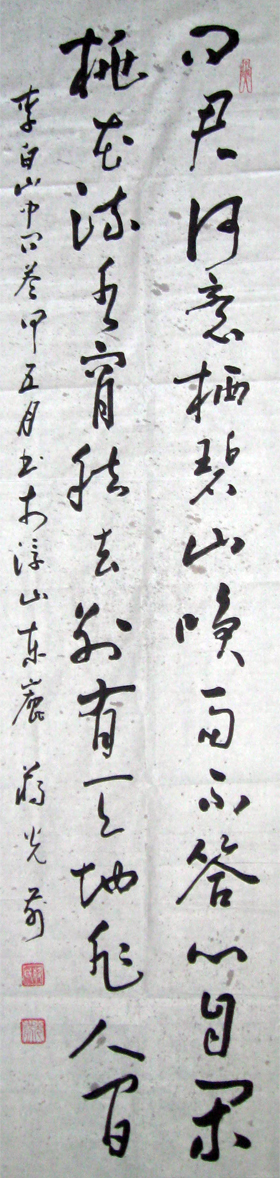 问君何意栖碧山咲而不答心自闲
桃花流水窅然去别有天地非人间
李白山中问答甲五月书于浮山东麓 蒋光前